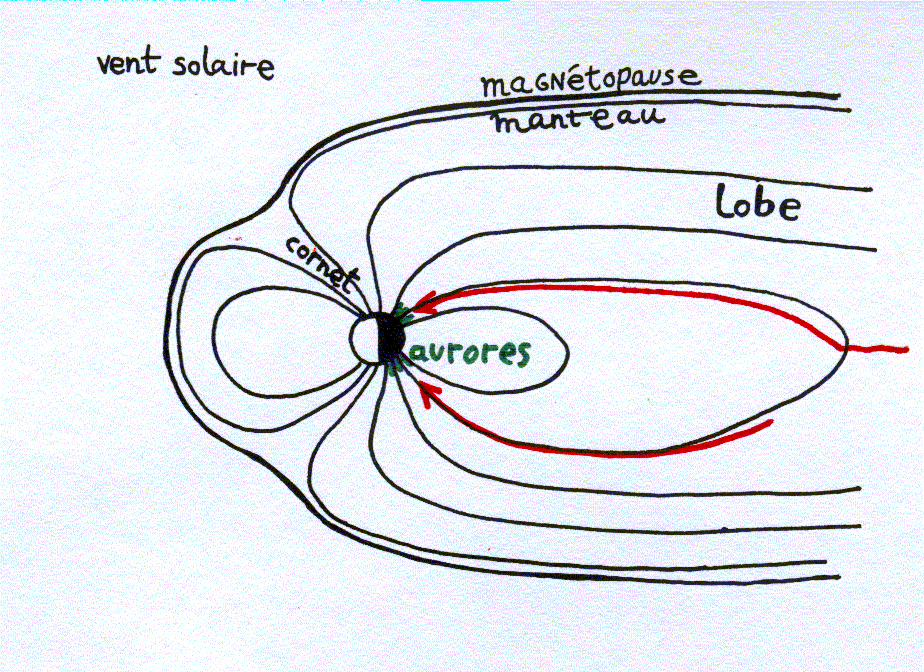 vent solaire
magnétopause
manteau
Lobe
cornet
aurores